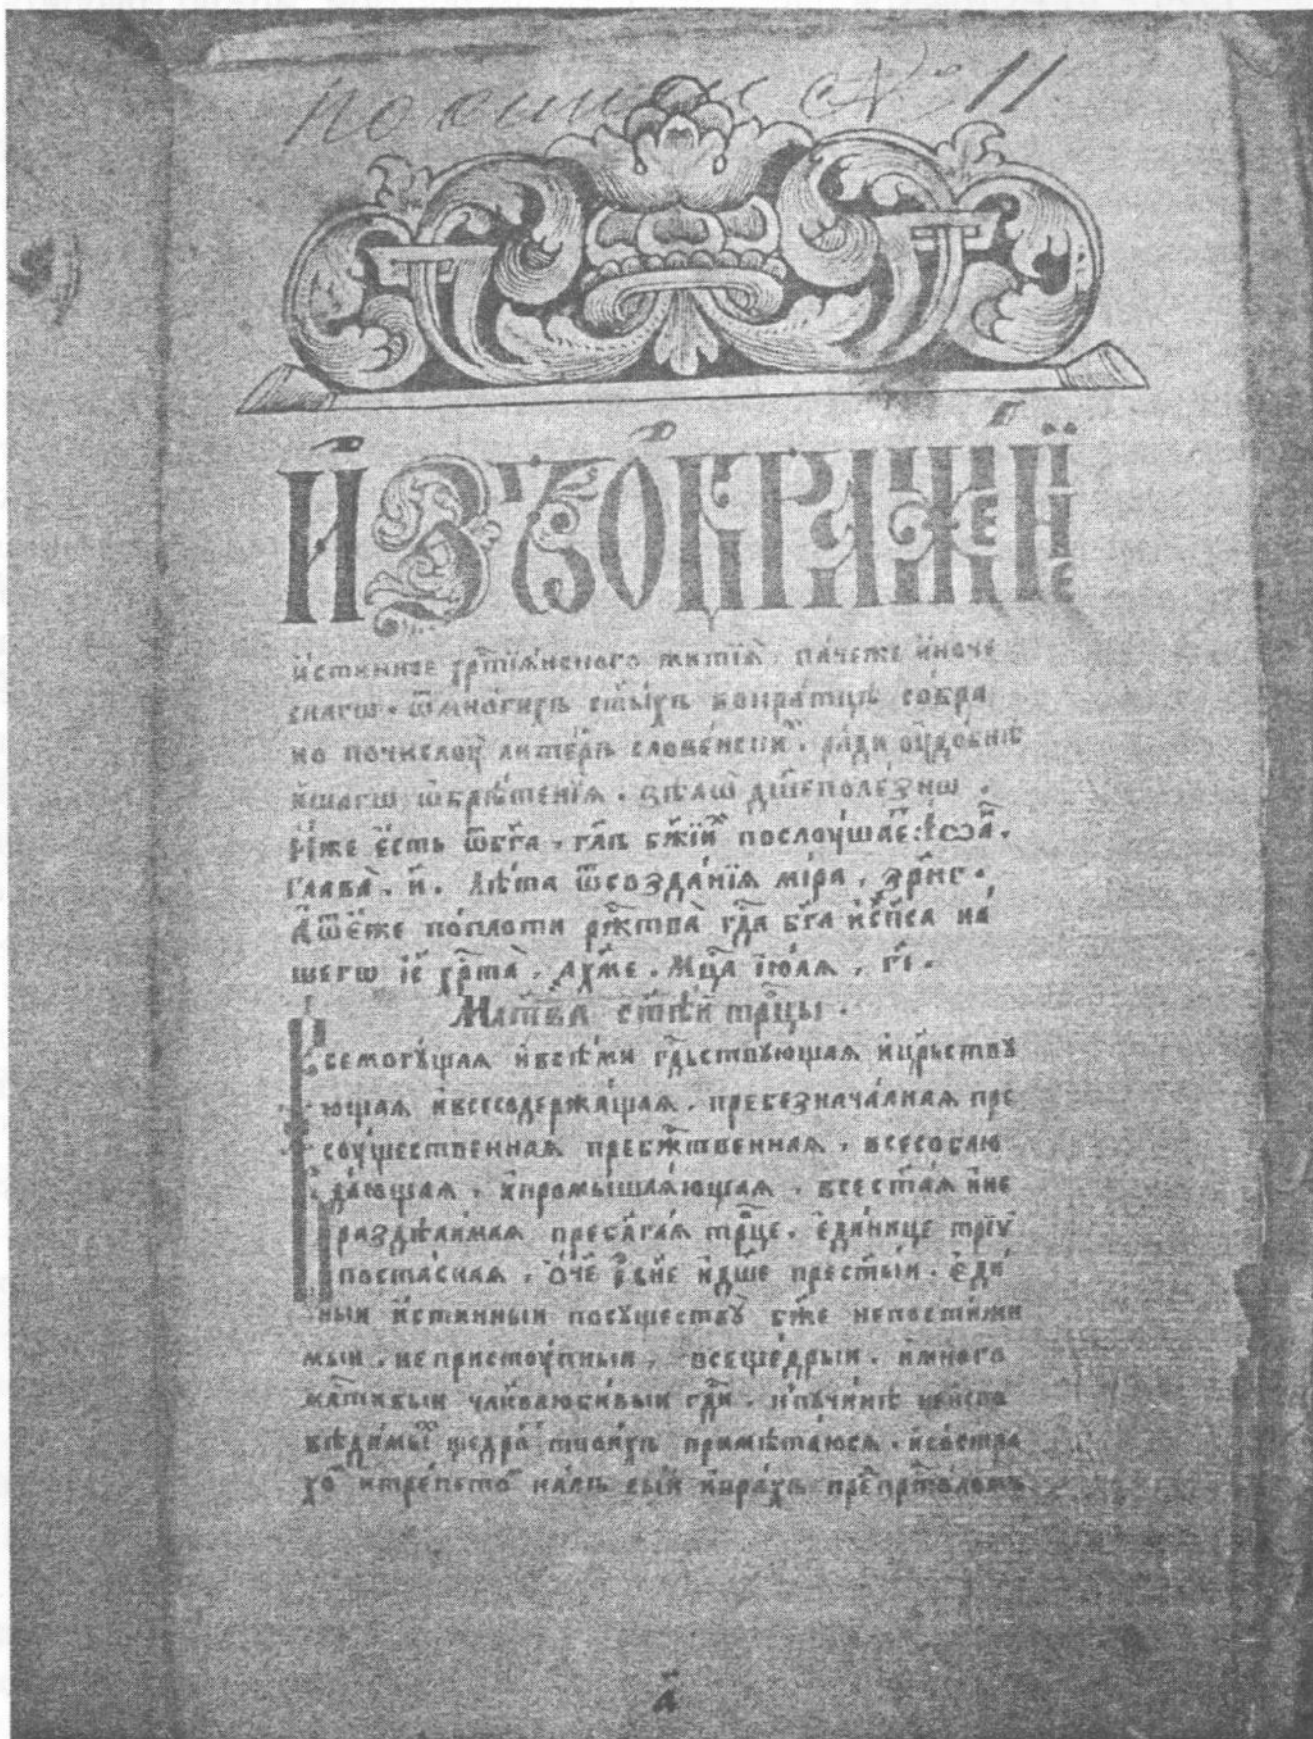 по описи № 11
И҆З̾ѠБРАЖЕ́НЇЕ
и҆́стиннаѡ хрⷭ҇тїѧ́нскаго житїѧ̀, па́чеже и҆́ноче
скагѡ. ѿмно́гихъ ст҃ы́хъ вокра́тцѣ собра
но почислꙋ̀ лите́ръ слове́нскиⷯ. ра́ди ᲂу҆до́бнѣ
йшагѡ ѡ҆брѣ́тенїѧ. ѕѣлѡ̀ дш҃еполе́знѡ.
И҆́же є҆́сть ѿбг҃а, гл҃ъ бж҃їиⷯ послꙋ́шаеⷮ: і҆ѡа́ⷩ.
глава̀. и҃. лѣ́та ѿсозда́нїѧ мі́ра, зр҃нг.
А҆ѿѐже попло́ти ржⷭ҇тва̀ гдⷭ҇а бг҃а и҆сп҃са на́
шегѡ і҆и҃ хрⷭ҇та̀, ахм҃е. Мцⷭ҇а і҆ю́лѧ, гі҃.
Мл҃тва ст҃ѣ́й трⷪ҇цы.
Всемогꙋ́щаѧ и҆всѣ́ми гдⷭ҇ьствꙋющаѧ и҆црⷭ҇ьствꙋ
ющаѧ и҆всесодержа́щаѧ. пребезнача́лнаѧ пре
сꙋ́щественнаѧ пребжⷭ҇твеннаѧ, всесоблю
да́ющаѧ, и҆промышлѧ́ющаѧ, всест҃а́ѧ и҆не
раздѣли́маѧ пребл҃га́ѧ трⷪ҇це. є҆ди́нице трїѵ
поста́снаѧ, ѻ҆́ч҃е и҆сн҃е и҆дш҃е прест҃ы́й. є҆ди́
ный и҆́стинный посꙋществꙋ̀ бж҃е непости́жи
мый. непристꙋ́пный, всеще́дрый. и҆мно́го
млⷭ҇тивый чл҃колюби́вый гдⷭ҇и. и҆пꙋчи́нѣ неи҆спо
вѣди́мыⷯ щедро́ⷮ твои́хъ примѣта́юсѧ. и҆состра́
хоⷨ и҆тре́петоⷨ